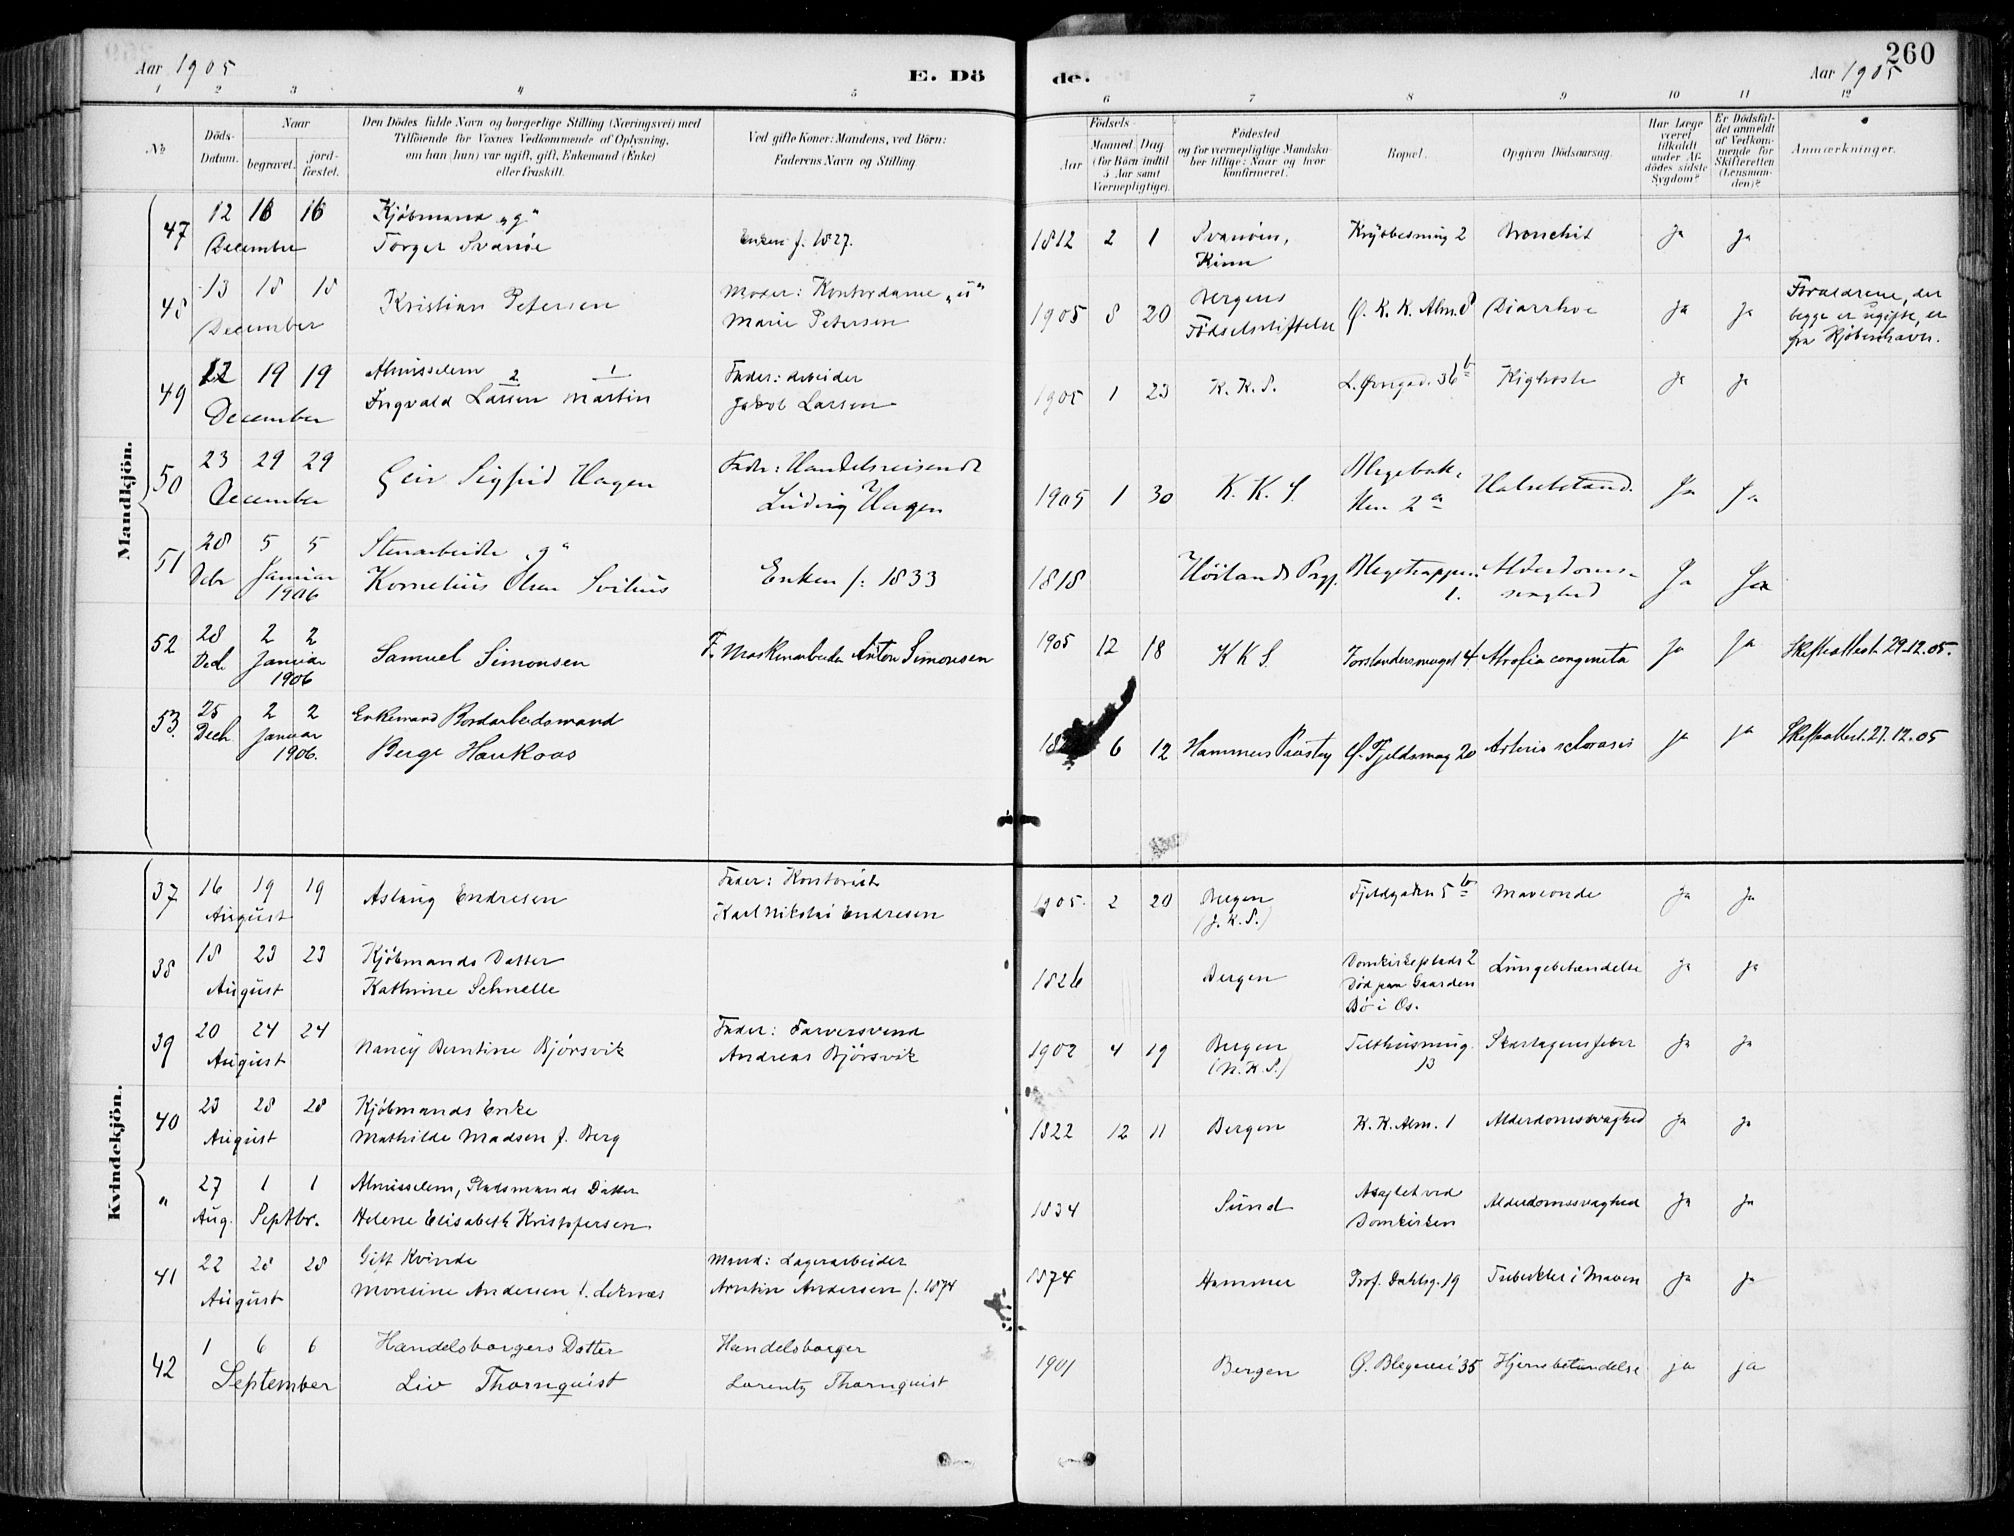 260
Aar 1905
E. Dö
de.
Aar 1905
1 2 3 4 5 6 7 8 9 10 11 12
No
Döds-
Datum.
Naar
begravet.
jord-
fæstet.
Den Dödes fulde Navn og borgerlige Stilling (Næringsvei) med
Tilföiende for Voxnes Vedkommende af Oplysning,
om han (hun) var ugift, gift, Enkemand (Enke)
eller fraskilt.
Ved gifte Koner: Mandens, ved Börn:
Faderens Navn og Stilling.
Födsels
Aar
Maaned
Dag
(for Börn indtil
5 Aar samt
Værnepligtige).
Födested
og for værnepligtige Mandska-
ber tillige: Naar og hvor
konfirmeret.
Bopæl.
Opgiven Dödsaarsag.
Har Læge
været
tilkaldt
under Af-
dödes sidste
Sygdom?
Er Dödsfal-
det anmeldt
af Vedkom-
mende for
Skifteretten
(Lensman-
den)?
Anmærkninger.
Mandkjön.
47 12 16 16 Kjöbmand „g“
December Torger Svanöe Enken f. 1827. 1812 2 1 Svanöen, Bronchit ja ja
Kinn
48 13 18 18 Moder: Kontordame „u“
December Kristian Petersen Marie Petersen 1905 8 20 Bergens Ø. K. K. Alm. 8 Diarrhoe ja ja
Födselsstiftelse
Forældrene, der
begge er ugifte, er
fra Kjöbenhavn.
49 12 19 19 Almisselem 2 1 Fader: Arbeider
December Ingvald Larsen Martin Jakob Larsen 1905 1 23 K. K. S. L. Øvregd. 36 b Kighoste ja ja
50 23 29 29 Fader: Handelsreisende
December Geir Sigfrid Hagen Ludvig Hagen 1905 1 30 K. K. S. 2 a Halsbetænd. Ja Ja
51 28 5 5 Stenarbeider „g“
Decbr Januar Kornelius Olsen Svilius Enken f: 1833 1818 Höilands Prgj. Blegetrappen Alderdoms-
1906 1. svaghed Ja Ja
52 28 2 2 Samuel Simonsen F. Maskinarbeider Anton Simonsen 1905 12 18 K K S. Forstandersmuget 4 Atrofia congenita Ja Ja Skifteattest. 29.12.05.
Dec. Januar
1906
53. 25 2 2 Enkemand Bordarbeidsmand
Decb Januar Berge Haukaas 6 12 Hammers Præsteg Ø. Fjeldsmug 20 Arterio sclorosis Ja Ja Skifteattest. 27.12.05
1906.
Kvindekjön.
37 16 19 19 Fader: Kontorist
August Aslaug Endresen Karl Nikolai Endresen 1905. 2 20 Bergen Fjeldgaden 5 b Maveonde Ja Ja
(J. K. S.)
38 18 23 23 Kjöbmands Datter
August Kathrine Schnelle 1826 Bergen Domkirkeplads 2 Lungebetændelse ja ja
Död paa Gaarden
Bö i Os.
39 20 24 24 Fader: Farversvend
August Nancy Berntine Bjørsvik Andreas Bjørsvik 1902 4 19 Bergen Telthusmug. Skarlagensfeber ja ja
(N. K. S.) 13
40 23 28 28 Kjöbmands Enke
August Mathilde Madsen f. Berg 1822 12 11 Bergen K. K. Alm. 1 Alderdomssvaghed ja ja
„ 27 1 1 Almisselem, Pladsmands Datter
Aug. Septbr. Helene Elisabeth Kristofersen 1834 Sund Asylet ved Alderdomssvaghed ja ja
Domkirken
41 22 28 28 Gift Kvinde Mand: Lagerarbeider
August Monsine Andersen f. Leknes Arntin Andersen f. 1874 1874 Hammer Prof. Dahlsg. 19 Tuberkler i Maven ja ja
42 1 6 6 Handelsborgers Datter Handelsborger
September Liv Thornquist Lorentz Thornquist 1901 Bergen Ø. Blegevei 35 Hjernebetændelse ja ja